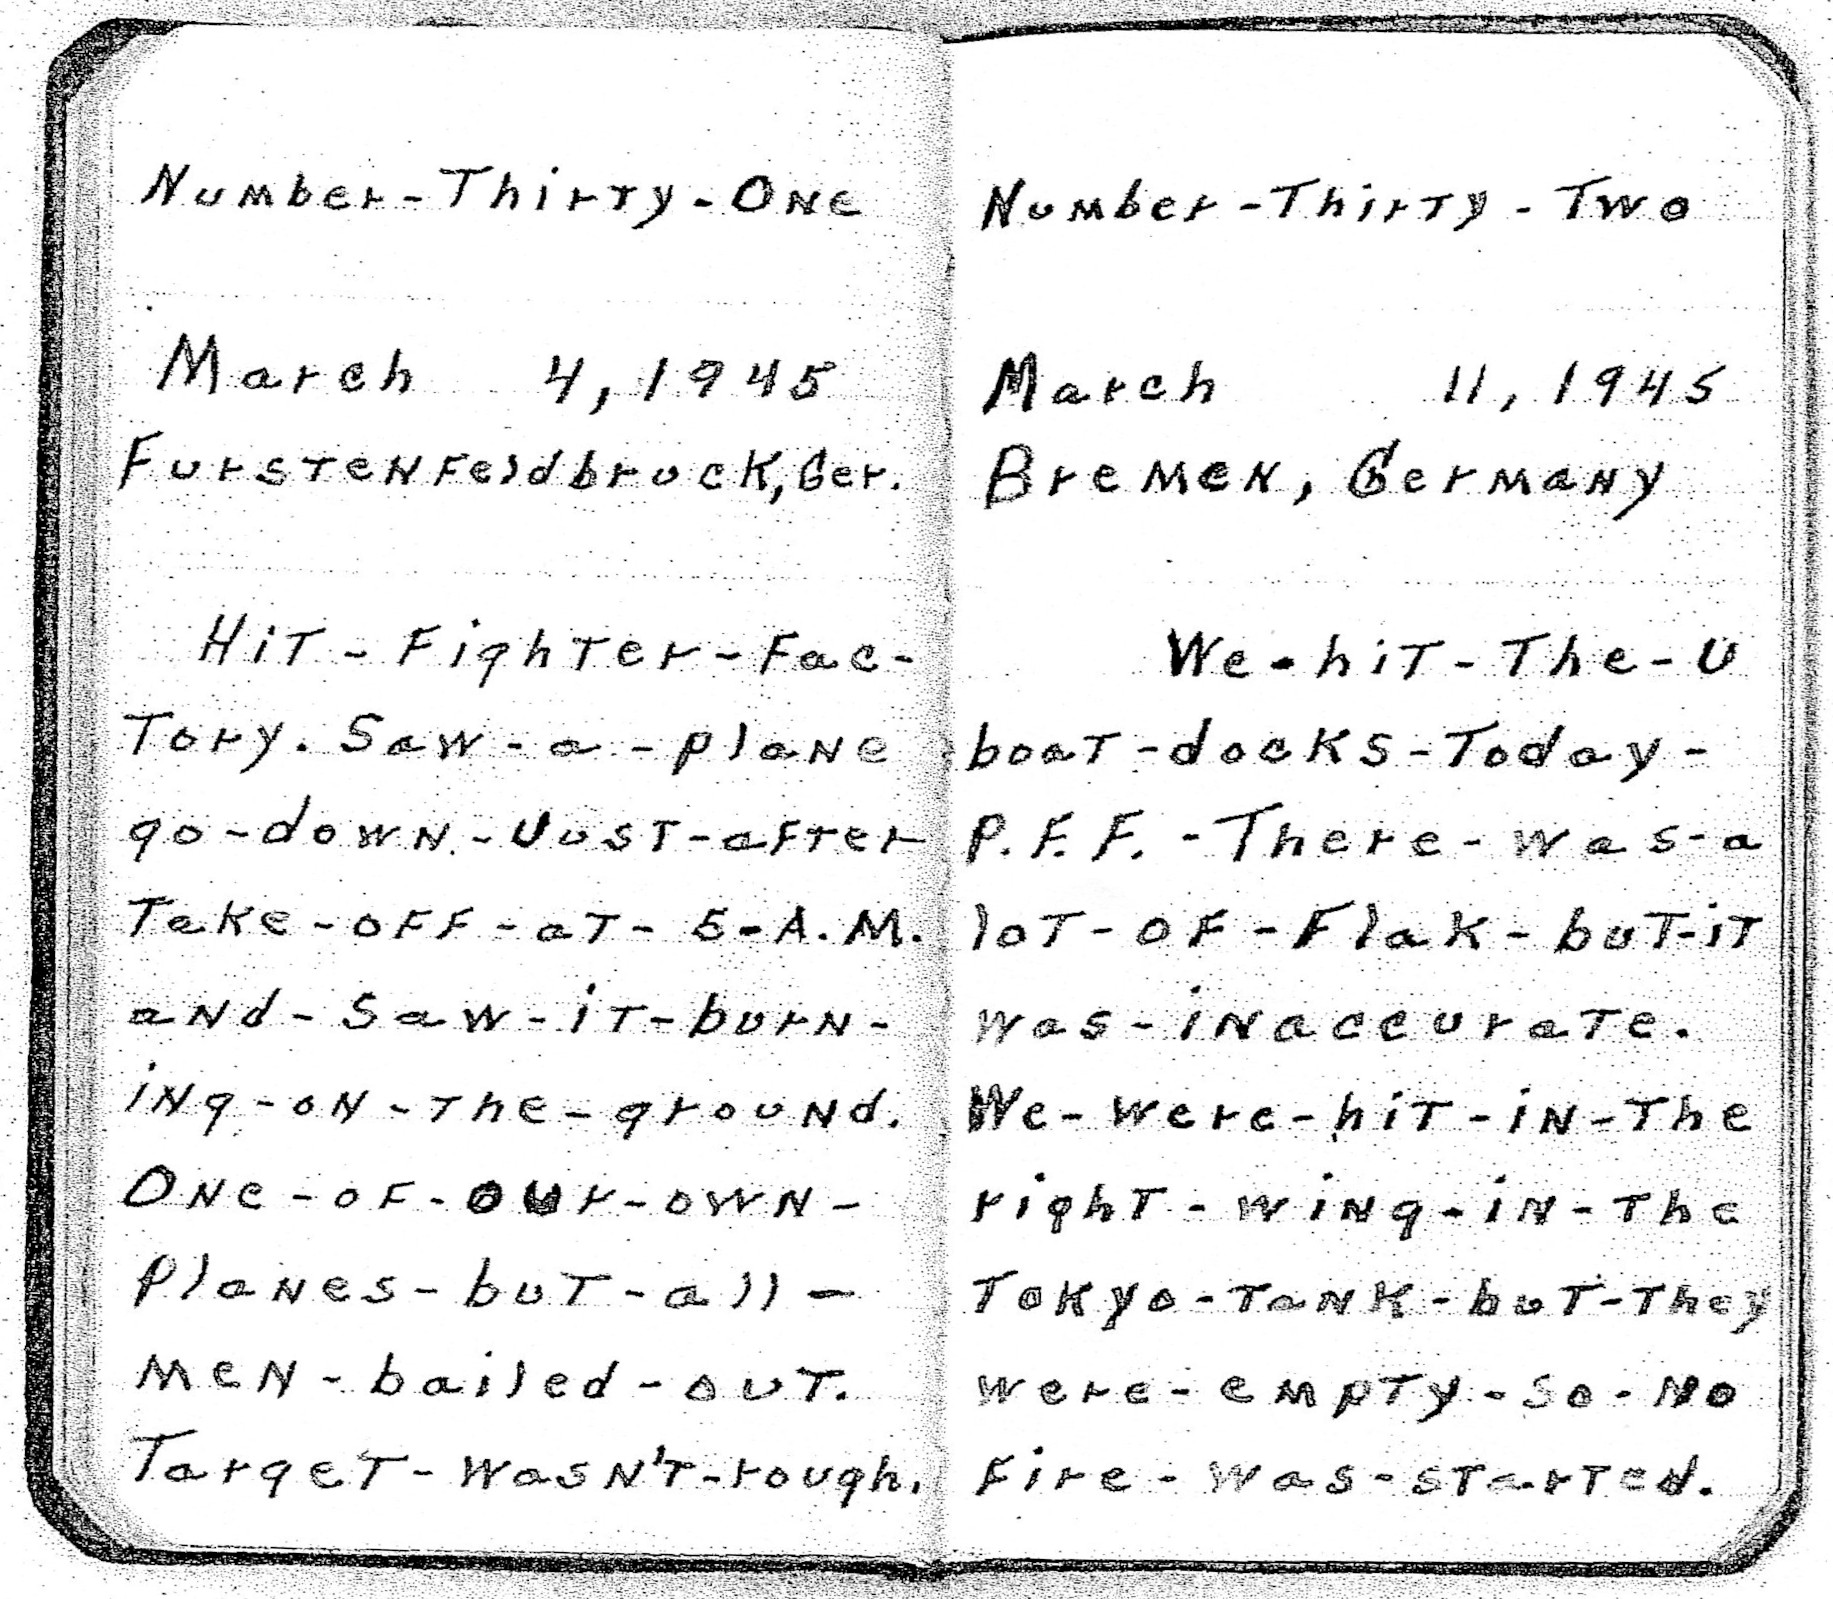 Number-Thirty-One
March 4, 1945
Furstenfeldbruck, Ger.
Hit-Fighter-Fac-
tory. Saw-a-plane
go-down-Just-after
Take-off-at-5-A.M.
and-Saw-it-burn-
ing-on-the-ground.
One-of-our-own-
planes-but-all-
men-bailed-out.
Target-wasn't-rough.
Number-Thirty-Two
March 11, 1945
Bremen, Germany
We-hit-The-U
boat-docks-Today-
P.F.F.-There-was-a
lot-of-Flak-but-it
was-inaccurate.
We-were-hit-in-The
right-wing-in-The
Tokyo-Tank-but-They
were-empty-so-no
fire-was-started.